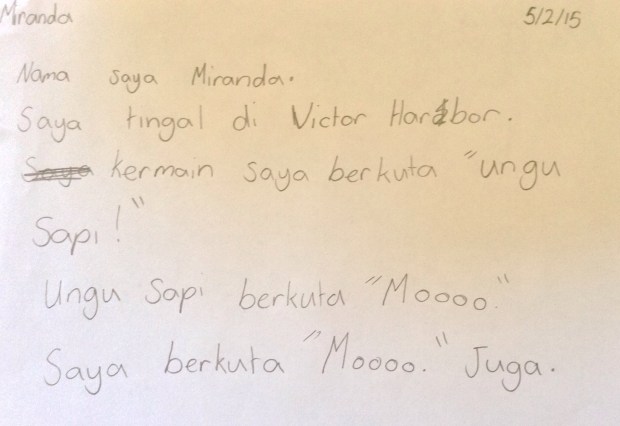 Mranda 5/2/15
Nama saya Miranda.
Saya tingal di Victor Harbor.
Saya kermain saya berkuta "ungu
Sapi!"
Ungu Sapi berkuta "Moooo."
Saya berkuta "Moooo." Juga.